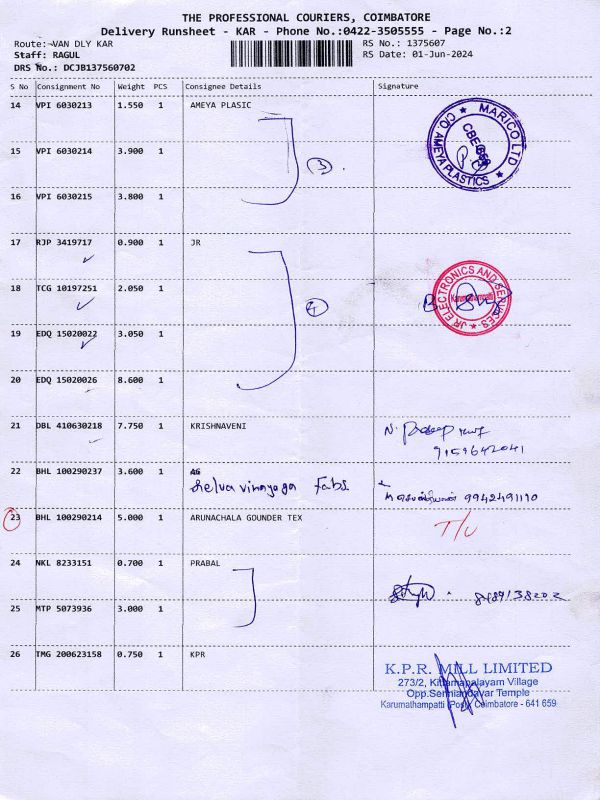 THE PROFESSIONAL COURIERS, COIMBATORE
Delivery Runsheet - KAR - Phone No.:0422-3505555 - Page No.:2
Route: VAN DLY KAR
RS No.: 1375607
Staff: RAGUL
RS Date: 01-Jun-2024
DRS No.: DCJB137560702
S No Consignment No Weight PCS Consignee Details Signature
14 VPI 6030213 1.550 1 AMEYA PLASIC
MARICO LTD
C/O AMEYA PLASTICS
15 VPI 6030214 3.900 1
3
16 VPI 6030215 3.800 1
17 RJP 3419717 0.900 1 JR
18 TCG 10197251 2.050 1
JR ELECTRONICS AND SERVICES
Karumathampatti
4
19 EDQ 15020022 3.050 1
20 EDQ 15020026 8.600 1
21 DBL 410630218 7.750 1 KRISHNAVENI
N. Pradeep
9159642041
22 BHL 100290237 3.600 1 AG
Selva vinayaga Fabs
9942491110
23 BHL 100290214 5.000 1 ARUNACHALA GOUNDER TEX
T/U
24 NKL 8233151 0.700 1 PRABAL
8489138202
25 MTP 5073936 3.000 1
26 TMG 200623158 0.750 1 KPR
K.P.R. MILL LIMITED
273/2, Kittampalayam Village
Opp.Senniandavar Temple
Karumathampatti (Post), Coimbatore - 641 659